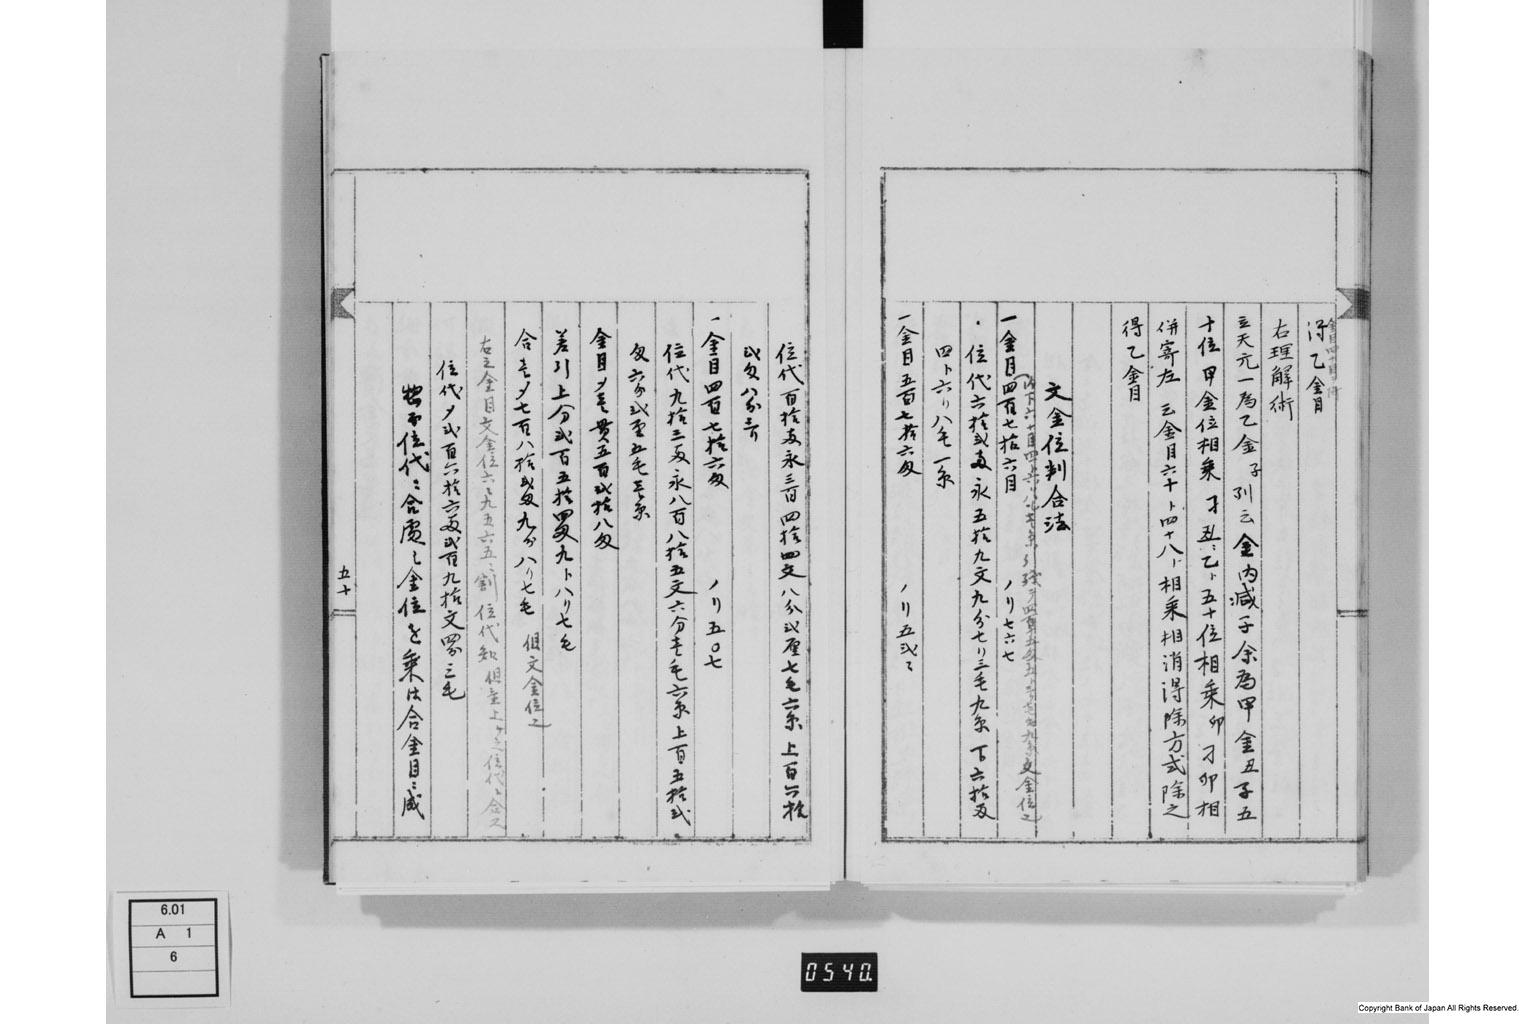 得乙金目
右理解術
立天元一為乙金子列云金内減子余為甲金丑子五
十位甲金位相乗子丑乙ト五十位相乗卯刁卯相
併寄左 云金目六十ト四十八ト相乗相消得除方式除之
得乙金目
文金位判合法
一金目四百七拾六目 ノリ七六七
位代六拾弐両永五拾九文九分七リ三毛九糸 下六拾匁
四ト六リ八毛一糸
一金目五百七拾六匁 ノリ五弐〻
位代百拾両永三百四拾四文八分弐厘七毛六糸 上百六拾
弐匁八分三リ
一金目四百七拾六匁 ノリ五〇七
位代九拾三両永八百八拾五文六分壱毛六糸 上百五拾弐
匁六分弐厘五毛三糸
金目〆壱貫五百弐拾八匁
差引上分弐百五拾四匁九ト八リ七毛
合壱〆七百八拾弐匁九分八リ七毛 但文金位之
右之金目文金位六〻九五六五〻割 位代知
位代〆弐百六拾六両弐百九拾文四分三毛
位代〻合 金位を乗は合金目〻成
五十
6.01
A 1
6
0540.
Copyright Bank of Japan All Rights Reserved.